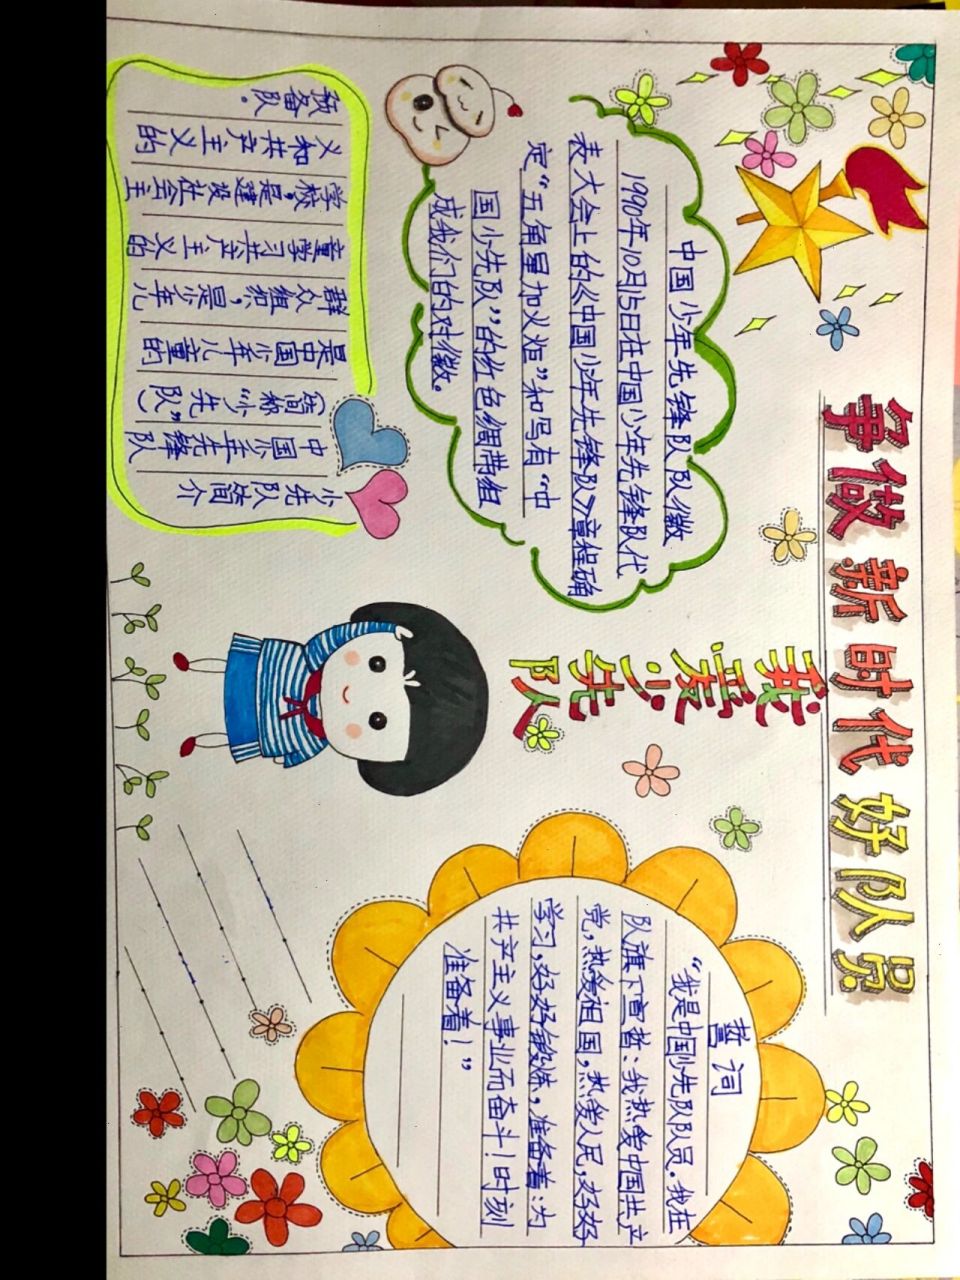 争做新时代好队员
我爱少先队
中国少年先锋队队徽
1990年10月15日在中国少年先锋队代
表大会上的《中国少年先锋队》章程确
定“五角星加火炬”和写有“中
国少先队”的红色绸带组
成我们的对徽。
少先队简介
中国少年先锋队
（简称“少先队”）
是中国少年儿童的
群众组织，是少年儿
童学习共产主义的
学校，是建设社会主
义和共产主义的
预备队。
誓词
“我是中国少先队队员。我在
队旗下宣誓：我热爱中国共产
党，热爱祖国，热爱人民，好好
学习，好好锻炼，准备着：为
共产主义事业而奋斗！时刻
准备着！”